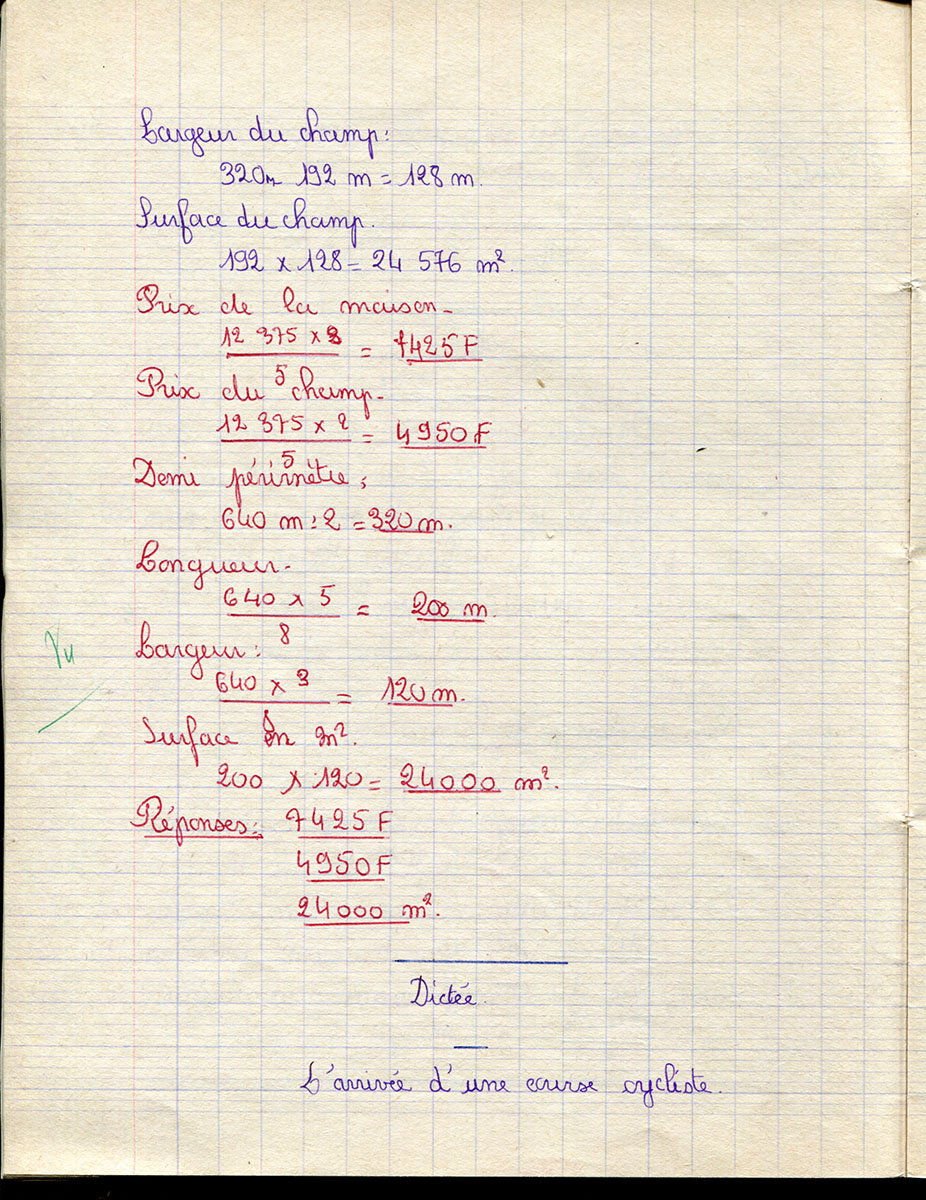 Largeur du champ:
320m 192 m = 128 m.
Surface du champ.
192 x 128 = 24 576 m².
Prix de la maison.
12 375 x 3 = 7425 F
5
Prix du champ.
12 375 x 2 = 4950 F
5
Demi périmètre:
640 m : 2 = 320 m.
Longueur.
640 x 5 = 200 m.
8
Largeur:
Vu
640 x 3 = 120 m.
8
Surface en m².
200 x 120 = 24000 m².
Réponses: 7425 F
4950 F
24000 m².
Dictée.
L'arrivée d'une course cycliste.